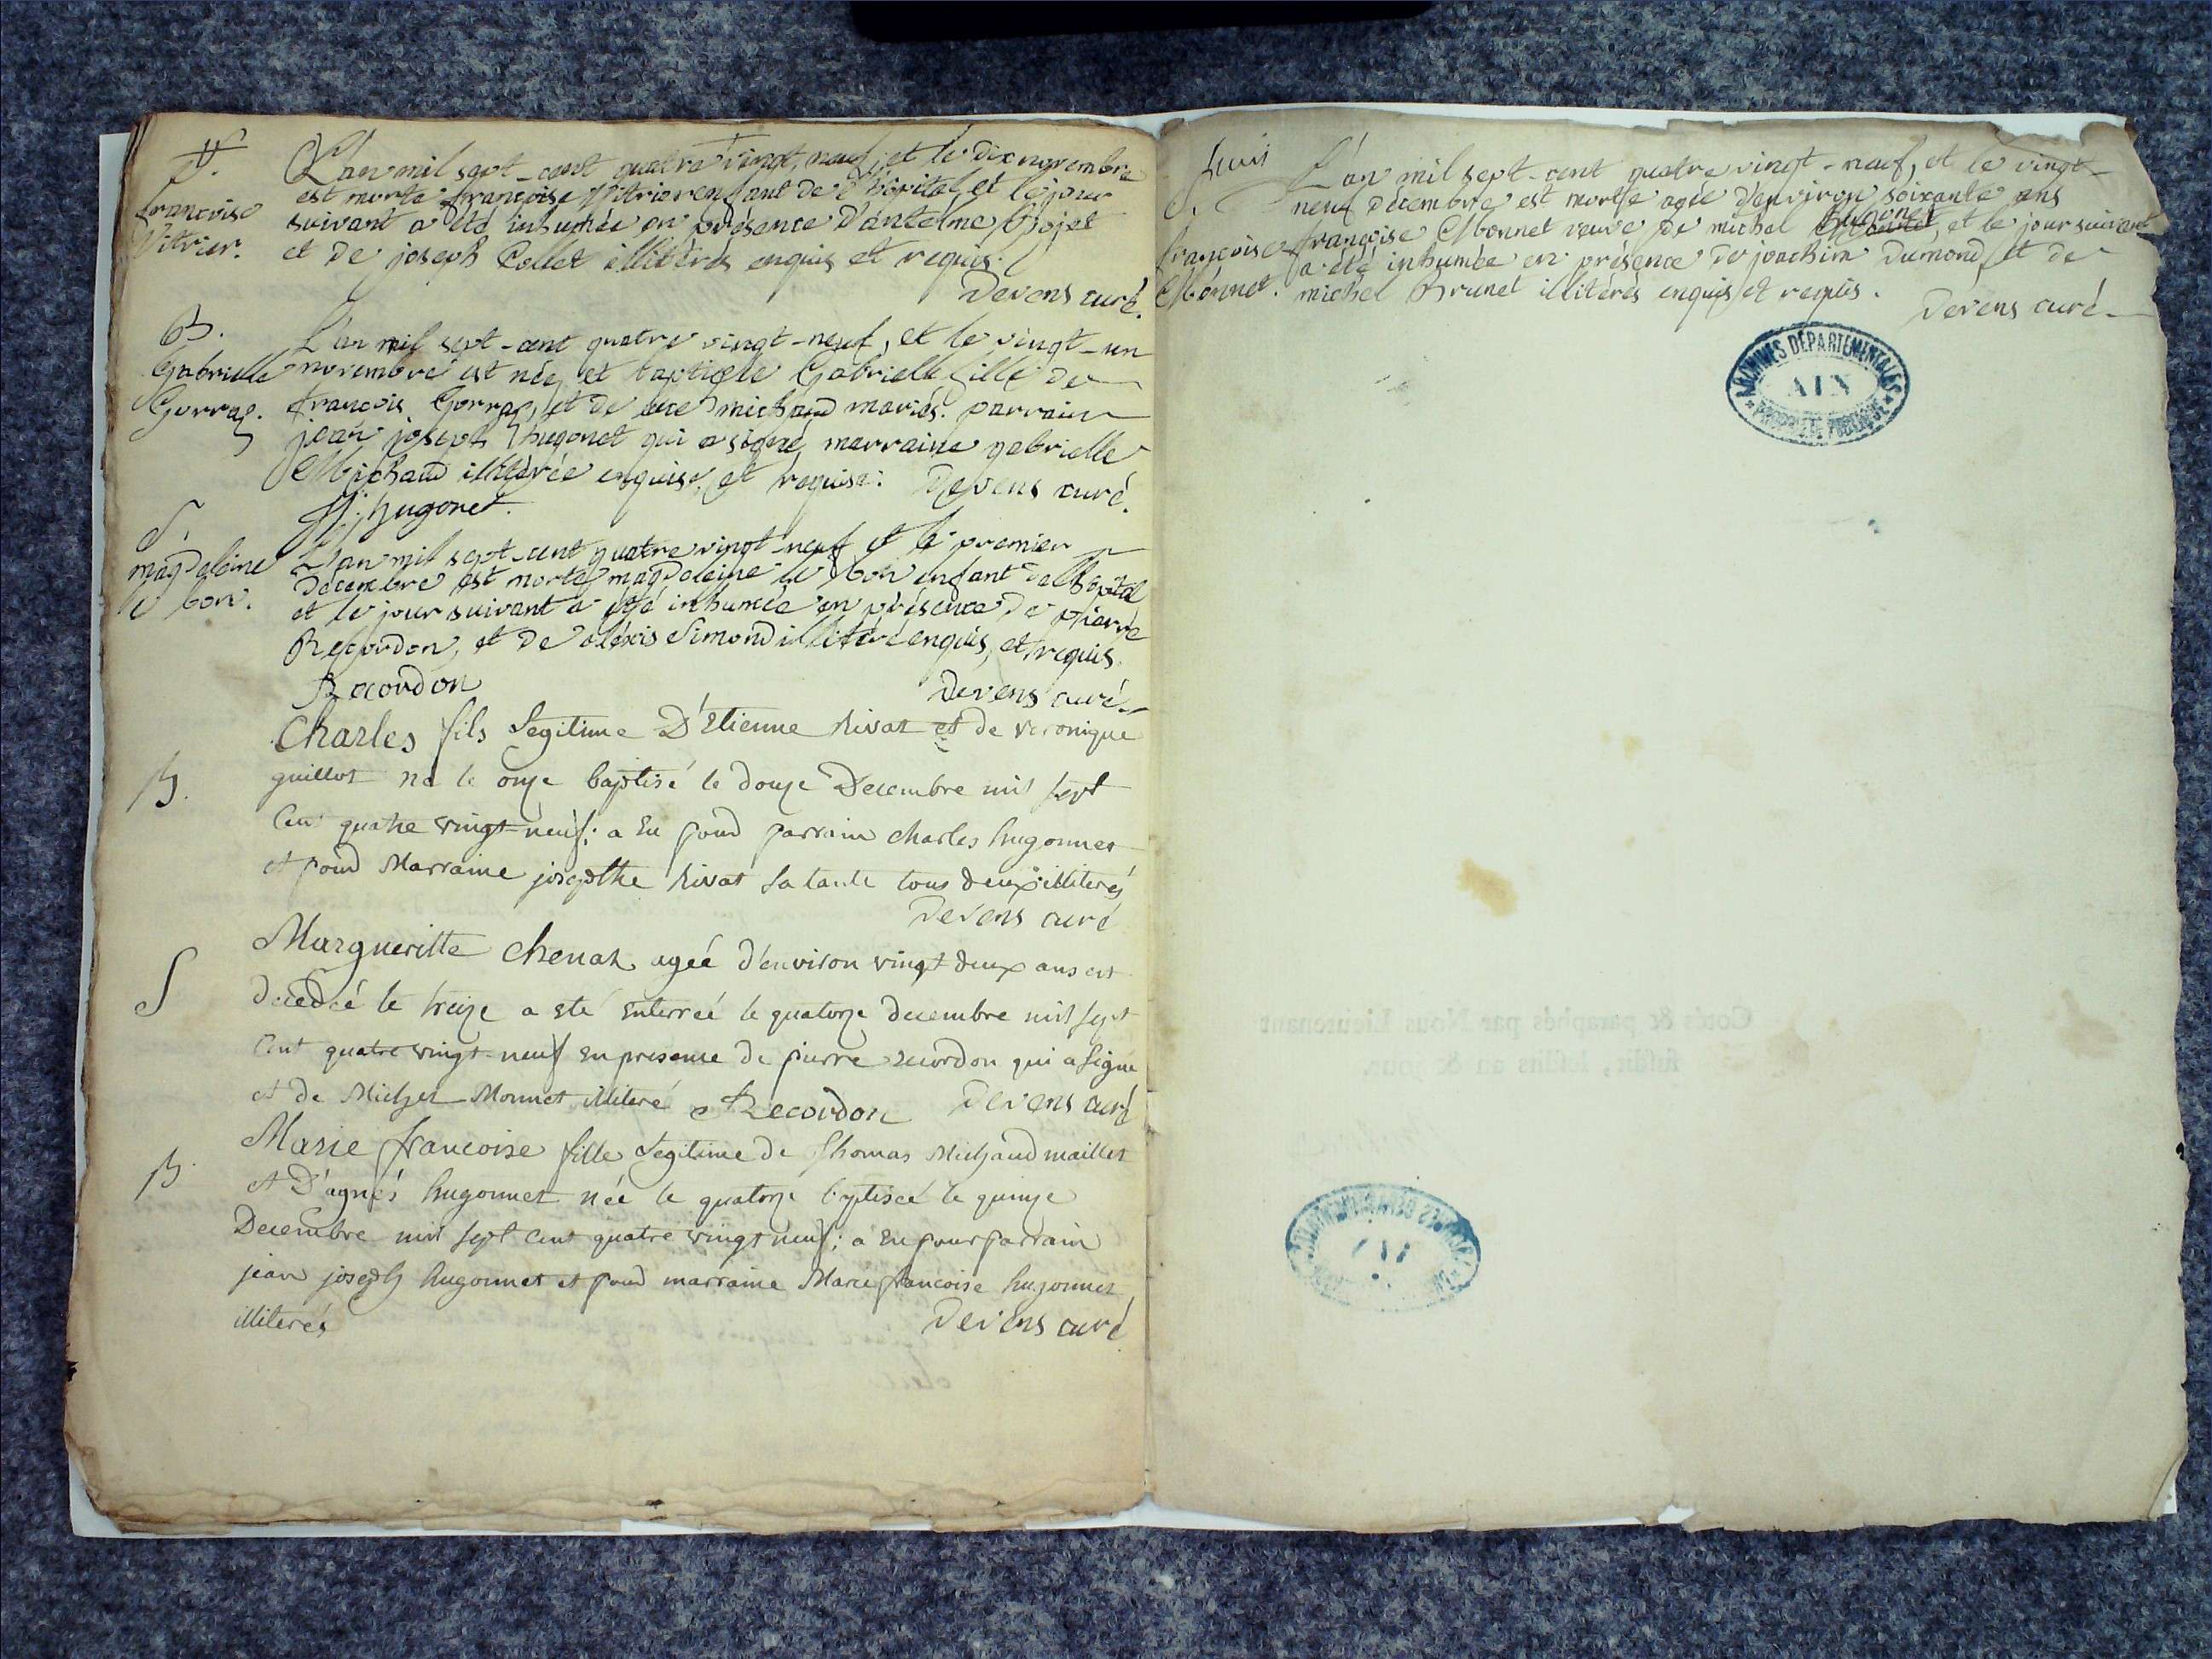 S.
françoise
Vitrier.
L'an mil sept-cent quatre vingt, neuf, et le dix novembre
est morte françoise Vitrier enfant de l'hôpital, et le jour
suivant a été inhumée en présence d'antelme
et de joseph Collet illitérés enquis et requis.
Devens curé.
B.
Gabrielle
Gorraz.
L'an mil sept-cent quatre vingt-neuf, et le vingt-un
novembre est née, et baptisée Gabrielle fille de
françois Gorraz, et de michaud mariés. parrain
jean joseph hugonet qui a signé, marraine gabrielle
Michaud illitérée enquise, et requise. Devens curé.
JJ. hugonet.
S.
magdeleine
le bon.
L'an mil sept-cent quatre vingt-neuf et le premier
décembre est morte magdeleine le bon enfant de l'hopital
et le jour suivant a été inhumée en présence de pierre
Recordon, et de aléxis Simond illitéré enquis, et requis.
Recordon Devens curé
B.
Charles fils Legitime D'Etienne Rivat et de Veronique
guillot né le onze baptisé le douze Decembre mil sept
Cent quatre vingt-neuf; a Eu pour parrain charles hugonnet
et pour Marraine josepthe Rivat sa tante tous deux illiterés
Devens curé
S
Margueritte Chenat agée d'environ vingt deux ans est
decedeé le treize a eté Enterreé le quatorze decembre mil sept
Cent quatre vingt-neuf En presence de pierre recordon qui a signé
et de Michel Monnet illiteré Recordon Devens curé
B
Marie francoise fille Legitime de Thomas Michaud maillet
et D'agnés hugonnet née le quatorze baptiseé le quinze
Decembre mil sept cent quatre vingt neuf; a Eu pour parrain
jean joseph hugonnet et pour marraine Marie francoise hugonnet
illiterés Devens curé
huit
S.
françoise
Monnet.
L'an mil sept-cent quatre vingt-neuf, et le vingt-
neuf décembre est morte agée d'environ soixante ans
françoise Monnet veuve de michel et le jour suivant
a été inhumée en présence de joachim Dumond, et de
michel Brunet illitérés enquis et requis.
Devens curé
ARCHIVES DÉPARTEMENTALES
AIN
PROPRIÉTÉ PUBLIQUE
Cotés & paraphés par Nous Lieutenant